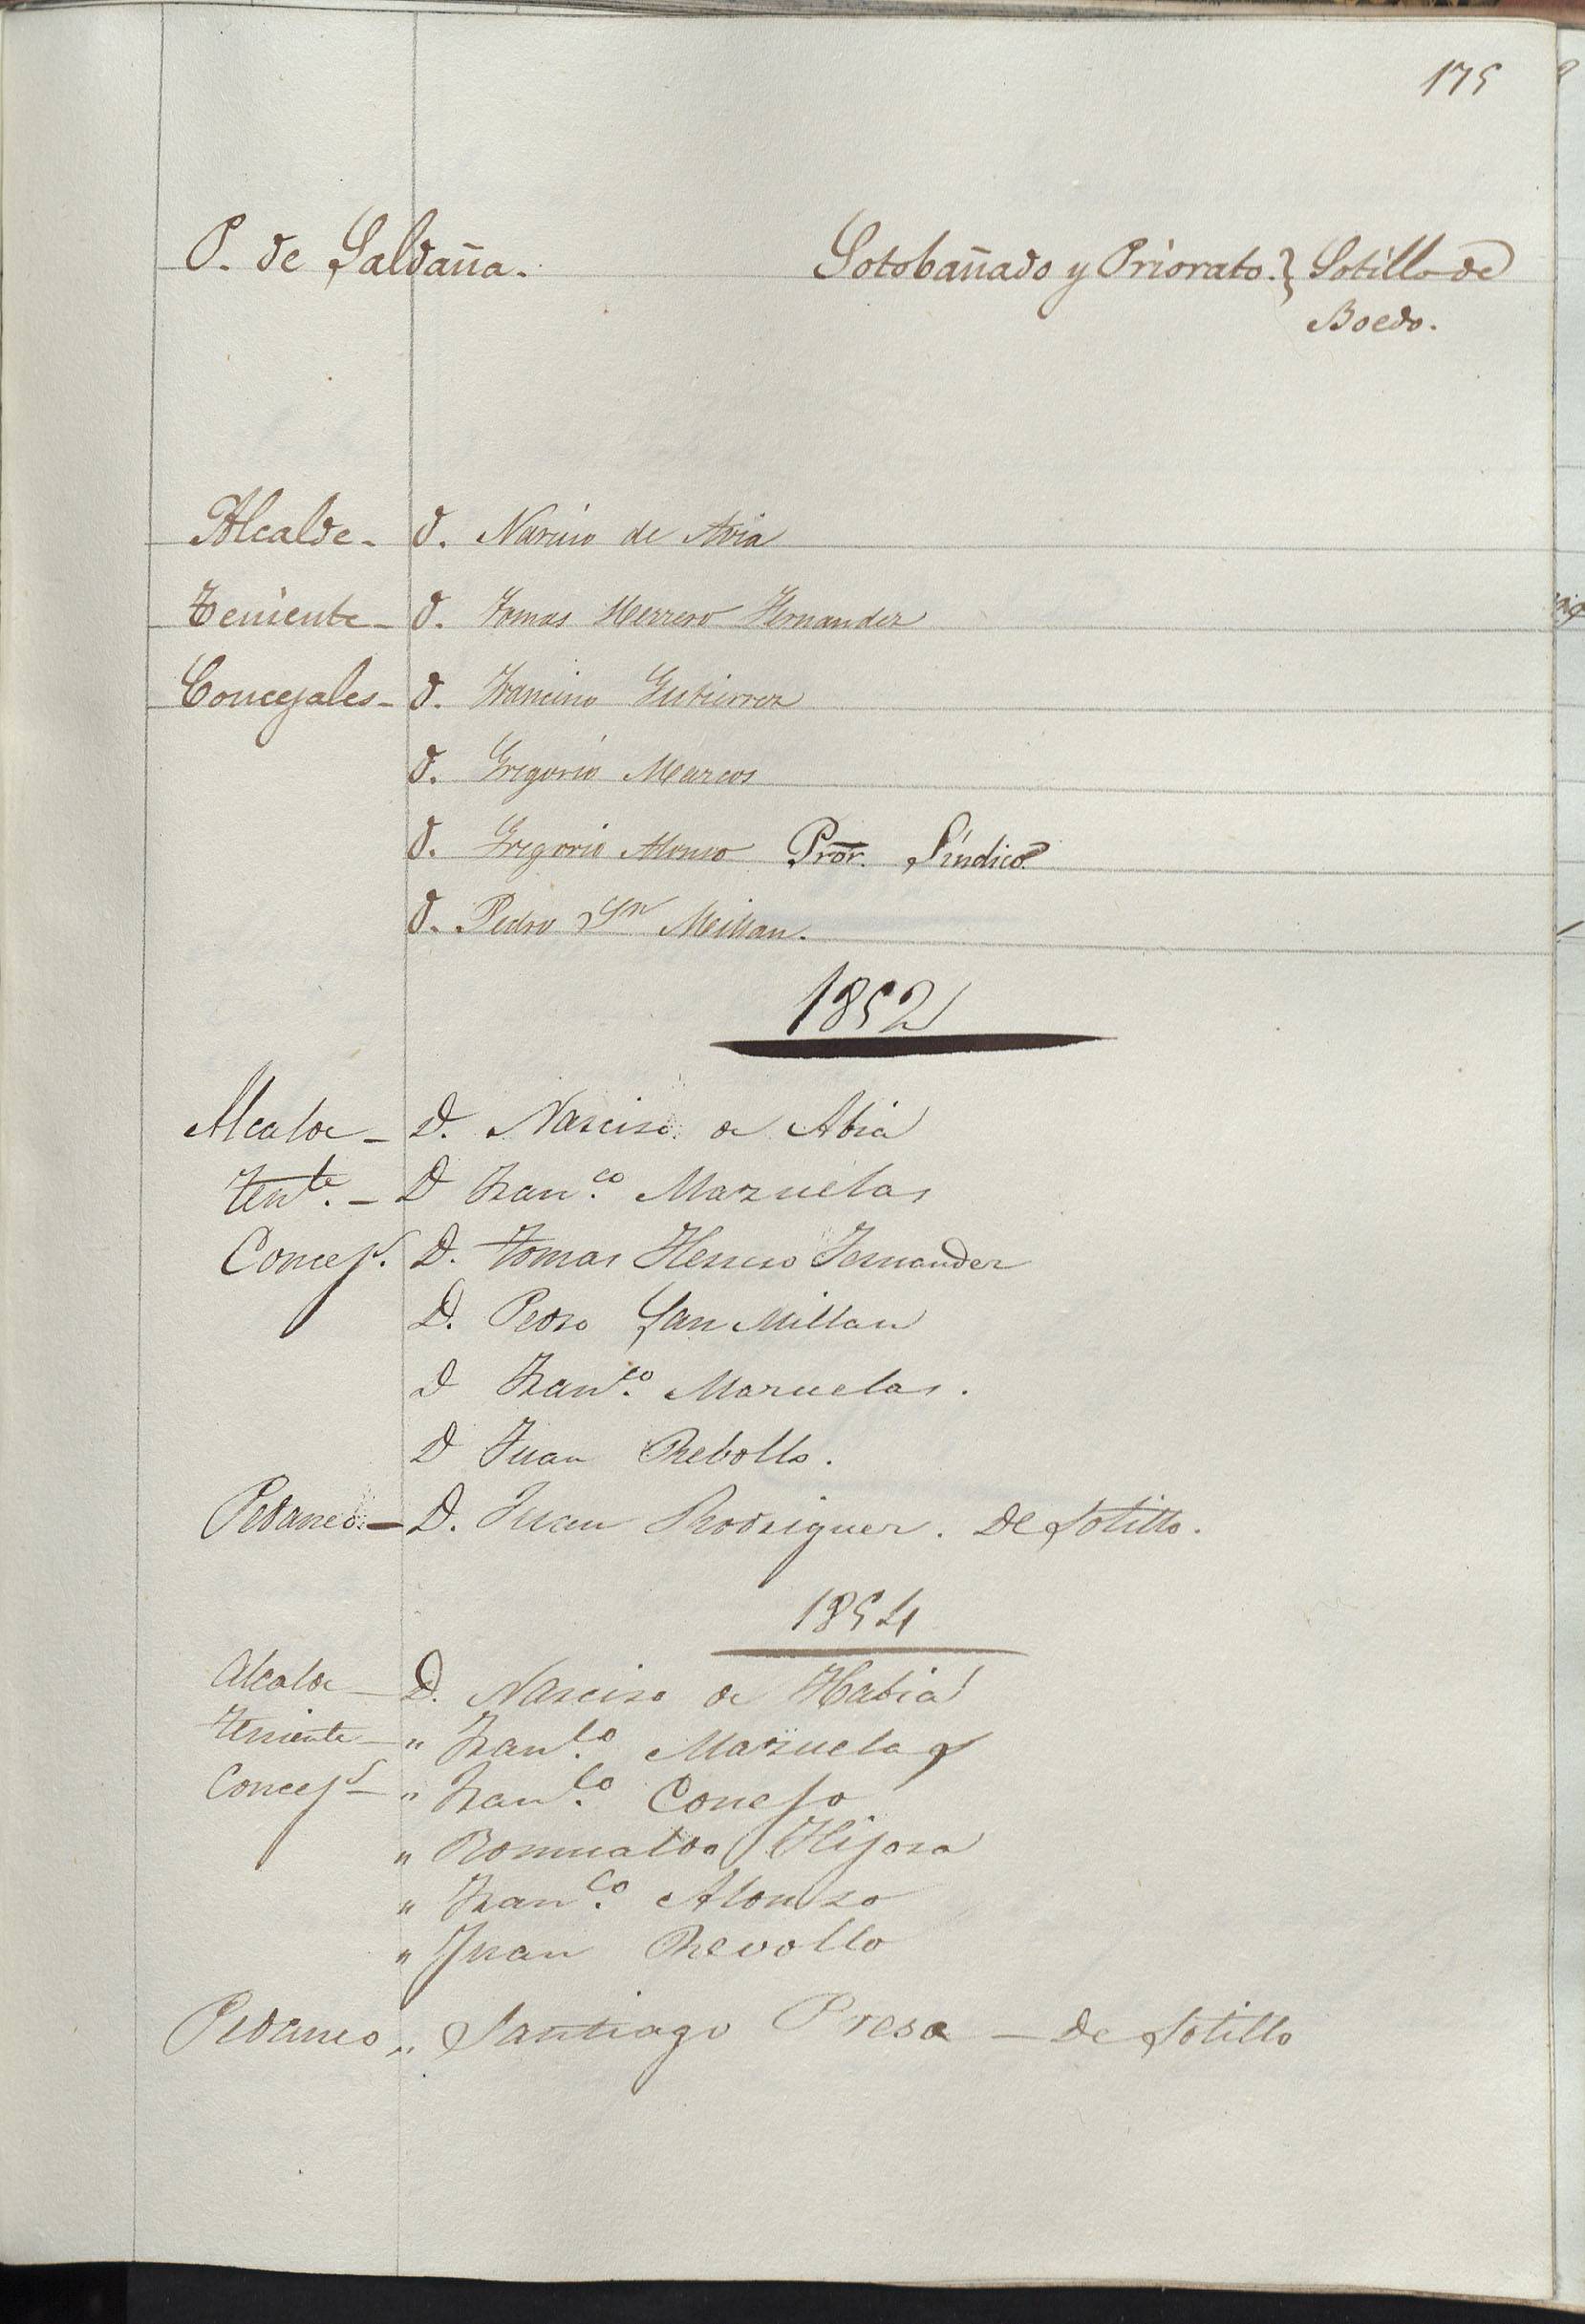 175
P. de Saldaña. Sotobañado y Priorato. } Sotillo de
Boedo.
Alcalde - D. Narciso de Avia
Teniente - D. Tomas Herrero Hernandez
Concejales - D. Francisco Gutierrez
D. Gregorio Marcos
D. Gregorio Alonso Pror. Síndico.
D. Pedro Sn Millan.
1852
Alcalde - D. Narciso de Abia
Tente. - D Franco. Mazuelas
Concejs. D. Tomas Herrero Fernandez
D. Pedro San Millan
D Franco. Mazuelas.
D Juan Rebollo.
Pedaneo. - D. Juan Rodriguez. De Sotillo.
1854
Alcalde - D. Narciso de Habia
Teniente - " Franco. Mazuelas
Concejs - " Franco. Conejo
" Romualdo Hijosa
" Franco. Alonso
" Juan Revollo
Pedaneo " Santiago Presa - de Sotillo